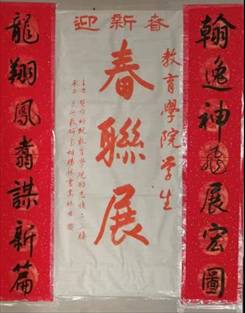 迎新春
翰逸神飛展宏圖
教育學院学生
春聯展
龍翔鳳翥謀新篇